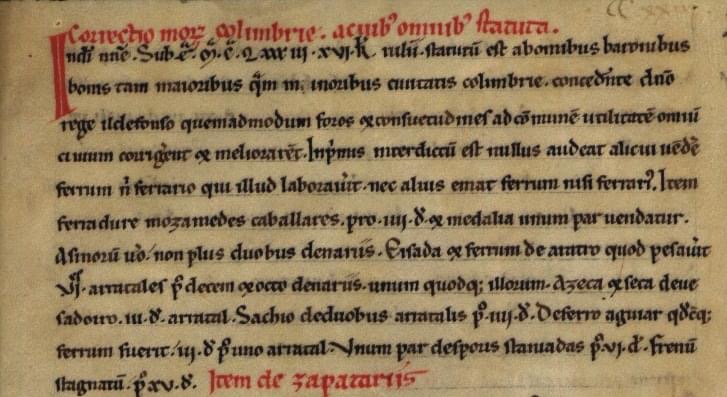 CCxxiii.
Correctio morum Colimbrie. a ciuib⁹ omnib⁹ statuta.
In dei nōe. Sub .E. M. C. Lxxxiii. xvi. k̄ iulii. statutū est a bonibus baronibus
bonis tam maioribus q̄m minoribus ciuitatis colimbrie. concedēte dn̄o
rege ildefonso quemadmodum foros ⁊ consuetudines ad cōmunē utilitatē omniū
ciuium corrigerent ⁊ meliorarēt. Inpͥmis interdictū est nullus audeat alicui uēdē
ferrum n̄ ferrario qui illud laborauͥt. nec alius emat ferrum nisi ferrariꝰ. Item
ferradure mozamedes caballares. pro .iiii. đ. ⁊ medalia unum par uendatur.
Asinorū uͦo. non plus duobus denariis. Eisada ⁊ ferrum de aratro quod pesauͥt
.VI. arratales p̱ decem ⁊ octo denariis. unum quodq; illorum. Azeca ⁊ seca deue
sadoiro. iii. đ. arratal. Sachio de duobus arratalis pͦ .iiii. đ. De ferro aguiar qđcq;
ferrum fuerit. iii. đ pͦ uno arratal. Vnum par desporis stanadas pͦ. vi. đ. frenū
stagnatū. pͦ xv. đ. Item de zapatariis